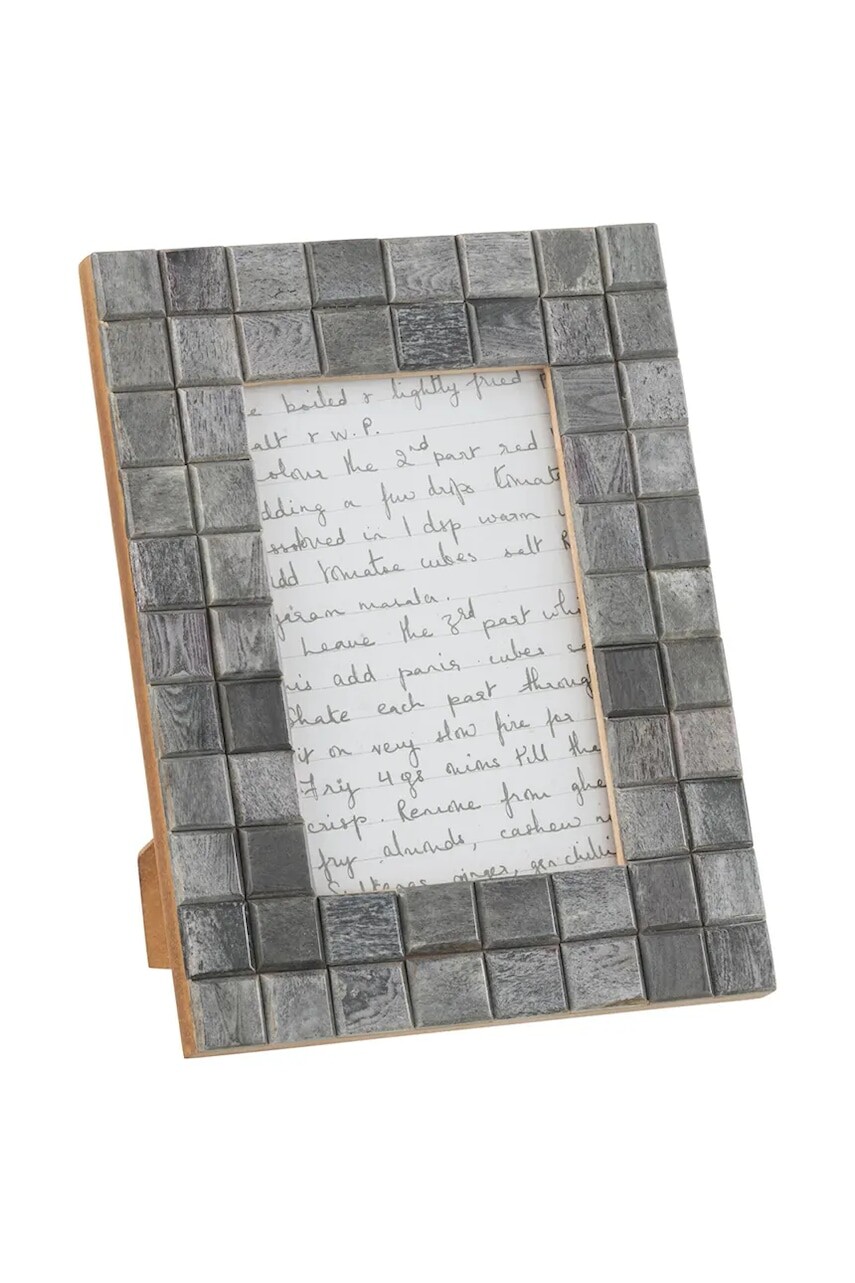 e boiled & lightly fried
alt & W.P.
olour the 2nd part red
dding a few drops tomato
ssolved in 1 dsp warm
dd tomatoe cubes salt
garam masala.
Leave the 3rd part whi
is add panir cubes sa
Shake each part throug
it on very slow fire for
Fry 4 gs mins till the
crisp. Remove from ghe
fry almonds, cashew n
Sultanas, ginger, gn chilli